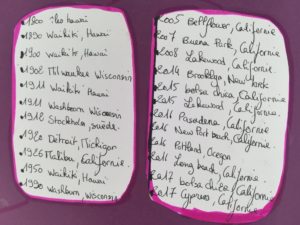 1800 îles hawaï
1890 Waikiki, Hawaï
1900 Waikiki, Hawaï
1908 Milwaukee Wisconsin
1911 Waikiki Hawaï
1911 Washburn Wisconsin
1918 Stockholm, suède.
1920 Détroit, Michigan
1926 Malibu, Californie.
1950 Waikiki, Hawaï
1990 Washburn, Wisconsin
2005 Bellflower, Californie
2007 Buena Park, Californie
2008 Lakewood, Californie.
2014 Brooklyn, New York
2015 bolsa chica, Californie
2015 Lakewood, Californie.
2016 Pasadena, Californie
2016 Newport beach, Californie
2016 Portland, Oregon
2016 Long beach, Californie
2017 bolsa chica, Californie
2017 Cypress, Californie.